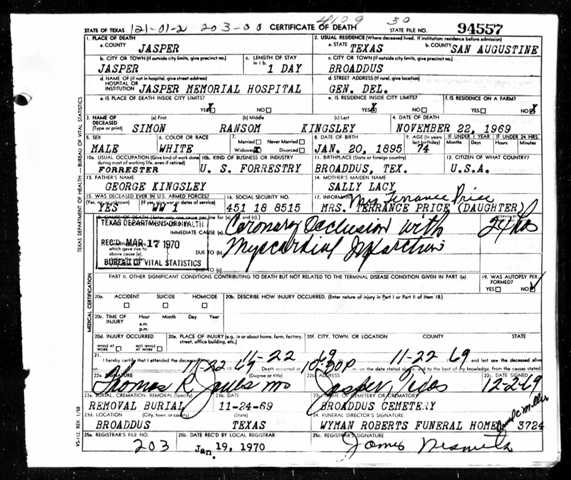 STATE OF TEXAS 121-01-2 203-00 CERTIFICATE OF DEATH 4129 30 STATE FILE NO. 94557
1. PLACE OF DEATH 2. USUAL RESIDENCE (Where deceased lived. If institution: residence before admission)
a. COUNTY JASPER a. STATE TEXAS b. COUNTY SAN AUGUSTINE
b. CITY OR TOWN (If outside city limits, give precinct no.) c. LENGTH OF STAY in 1 b. c. CITY OR TOWN (If outside city limits, give precinct no.)
JASPER 1 DAY BROADDUS
d. NAME OF (If not in hospital, give street address) HOSPITAL OR INSTITUTION JASPER MEMORIAL HOSPITAL d. STREET ADDRESS (If rural, give location) GEN. DEL.
e. IS PLACE OF DEATH INSIDE CITY LIMITS? YES X NO e. IS RESIDENCE INSIDE CITY LIMITS? YES X NO f. IS RESIDENCE ON A FARM? YES NO X
3. NAME OF DECEASED (Type or print) (a) First (b) Middle (c) Last 4. DATE OF DEATH
SIMON RANSOM KINGSLEY NOVEMBER 22, 1969
5. SEX 6. COLOR OR RACE 7. Married Never Married Widowed X Divorced 8. DATE OF BIRTH 9. AGE (In years last birthday) IF UNDER 1 YEAR IF UNDER 24 HRS.
MALE WHITE JAN. 20, 1895 74
10a. USUAL OCCUPATION (Give kind of work done during most of working life, even if retired) 10b. KIND OF BUSINESS OR INDUSTRY 11. BIRTHPLACE (State or foreign country) 12. CITIZEN OF WHAT COUNTRY?
FORRESTER U. S. FORRESTRY BROADDUS, TEX. U.S.A.
13. FATHER'S NAME 14. MOTHER'S MAIDEN NAME
GEORGE KINGSLEY SALLY LACY
15. WAS DECEASED EVER IN U.S. ARMED FORCES? 16. SOCIAL SECURITY NO. 17. INFORMANT Mrs Terrance Price
YES WW 1 451 18 8515 MRS. TERRANCE PRICE (DAUGHTER)
TEXAS DEPARTMENT OF HEALTH
REC'D MAR 17 1970
BUREAU OF VITAL STATISTICS
IMMEDIATE CAUSE (a) Coronary Occlusion with 24 hrs
DUE TO (b) Myocardial Infarction
DUE TO (c)
PART II. OTHER SIGNIFICANT CONDITIONS CONTRIBUTING TO DEATH BUT NOT RELATED TO THE TERMINAL DISEASE CONDITION GIVEN IN PART I (a) 19. WAS AUTOPSY PERFORMED? YES NO
20a. ACCIDENT SUICIDE HOMICIDE 20b. DESCRIBE HOW INJURY OCCURRED. (Enter nature of injury in Part I or Part II of item 18.)
20c. TIME OF INJURY Hour a.m. p.m.
20d. INJURY OCCURRED WHILE AT WORK NOT WHILE AT WORK 20e. PLACE OF INJURY (e.g., in or about home, farm, factory, street, office building, etc.) 20f. CITY, TOWN, OR LOCATION COUNTY STATE
21. I hereby certify that I attended the deceased 11-22 69 11-22 69 and last saw the deceased alive
11-22 69 Death occurred at 10:30P on the date stated above, and to the best of my knowledge, from the causes stated.
22a. SIGNATURE (Degree or title) 22b. ADDRESS 22c. DATE SIGNED
Thomas R. Jones MD Jasper, Texas 12-2-69
23a. BURIAL, CREMATION, REMOVAL (Specify) 23b. DATE 23c. NAME OF CEMETERY OR CREMATORY
REMOVAL BURIAL 11-24-69 BROADDUS CEMETERY
23d. LOCATION (City, town, or county) (State) 24. FUNERAL DIRECTOR'S SIGNATURE
BROADDUS TEXAS WYMAN ROBERTS FUNERAL HOME 3724
25a. REGISTRAR'S FILE NO. 25b. DATE REC'D BY LOCAL REGISTRAR 25c. REGISTRAR'S SIGNATURE
203 Jan 19, 1970 James Nesmith
TEXAS DEPARTMENT OF HEALTH — BUREAU OF VITAL STATISTICS
MEDICAL CERTIFICATION